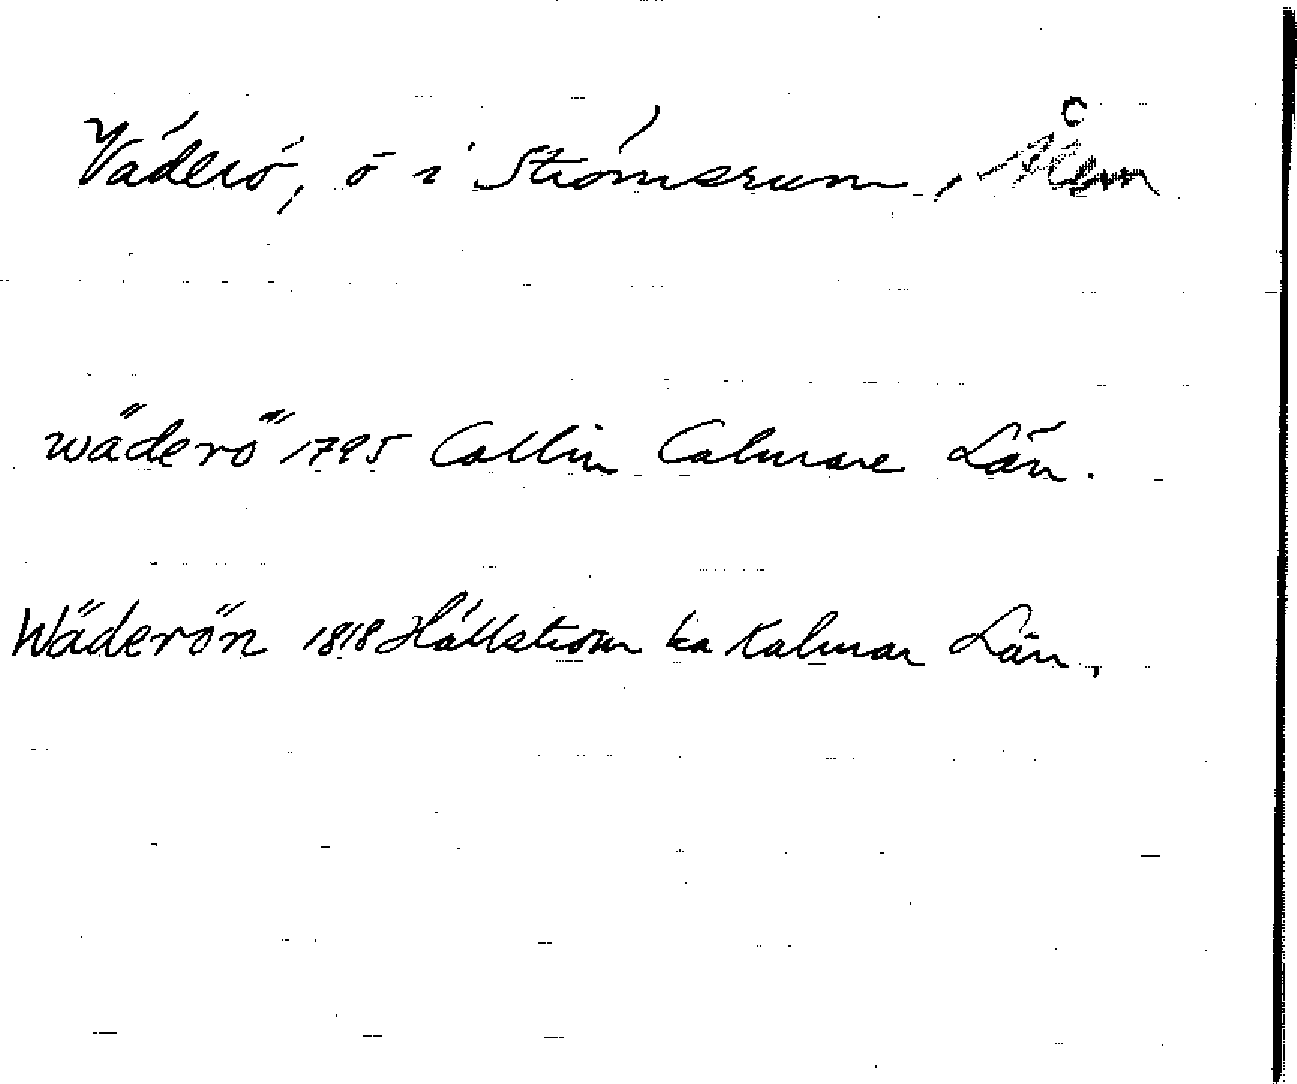 Väderö, ö i Strömsrum, Ålem
Wäderö 1795 Collin Calmare Län.
Wäderön 1818 Hällström ka Kalmar Län,